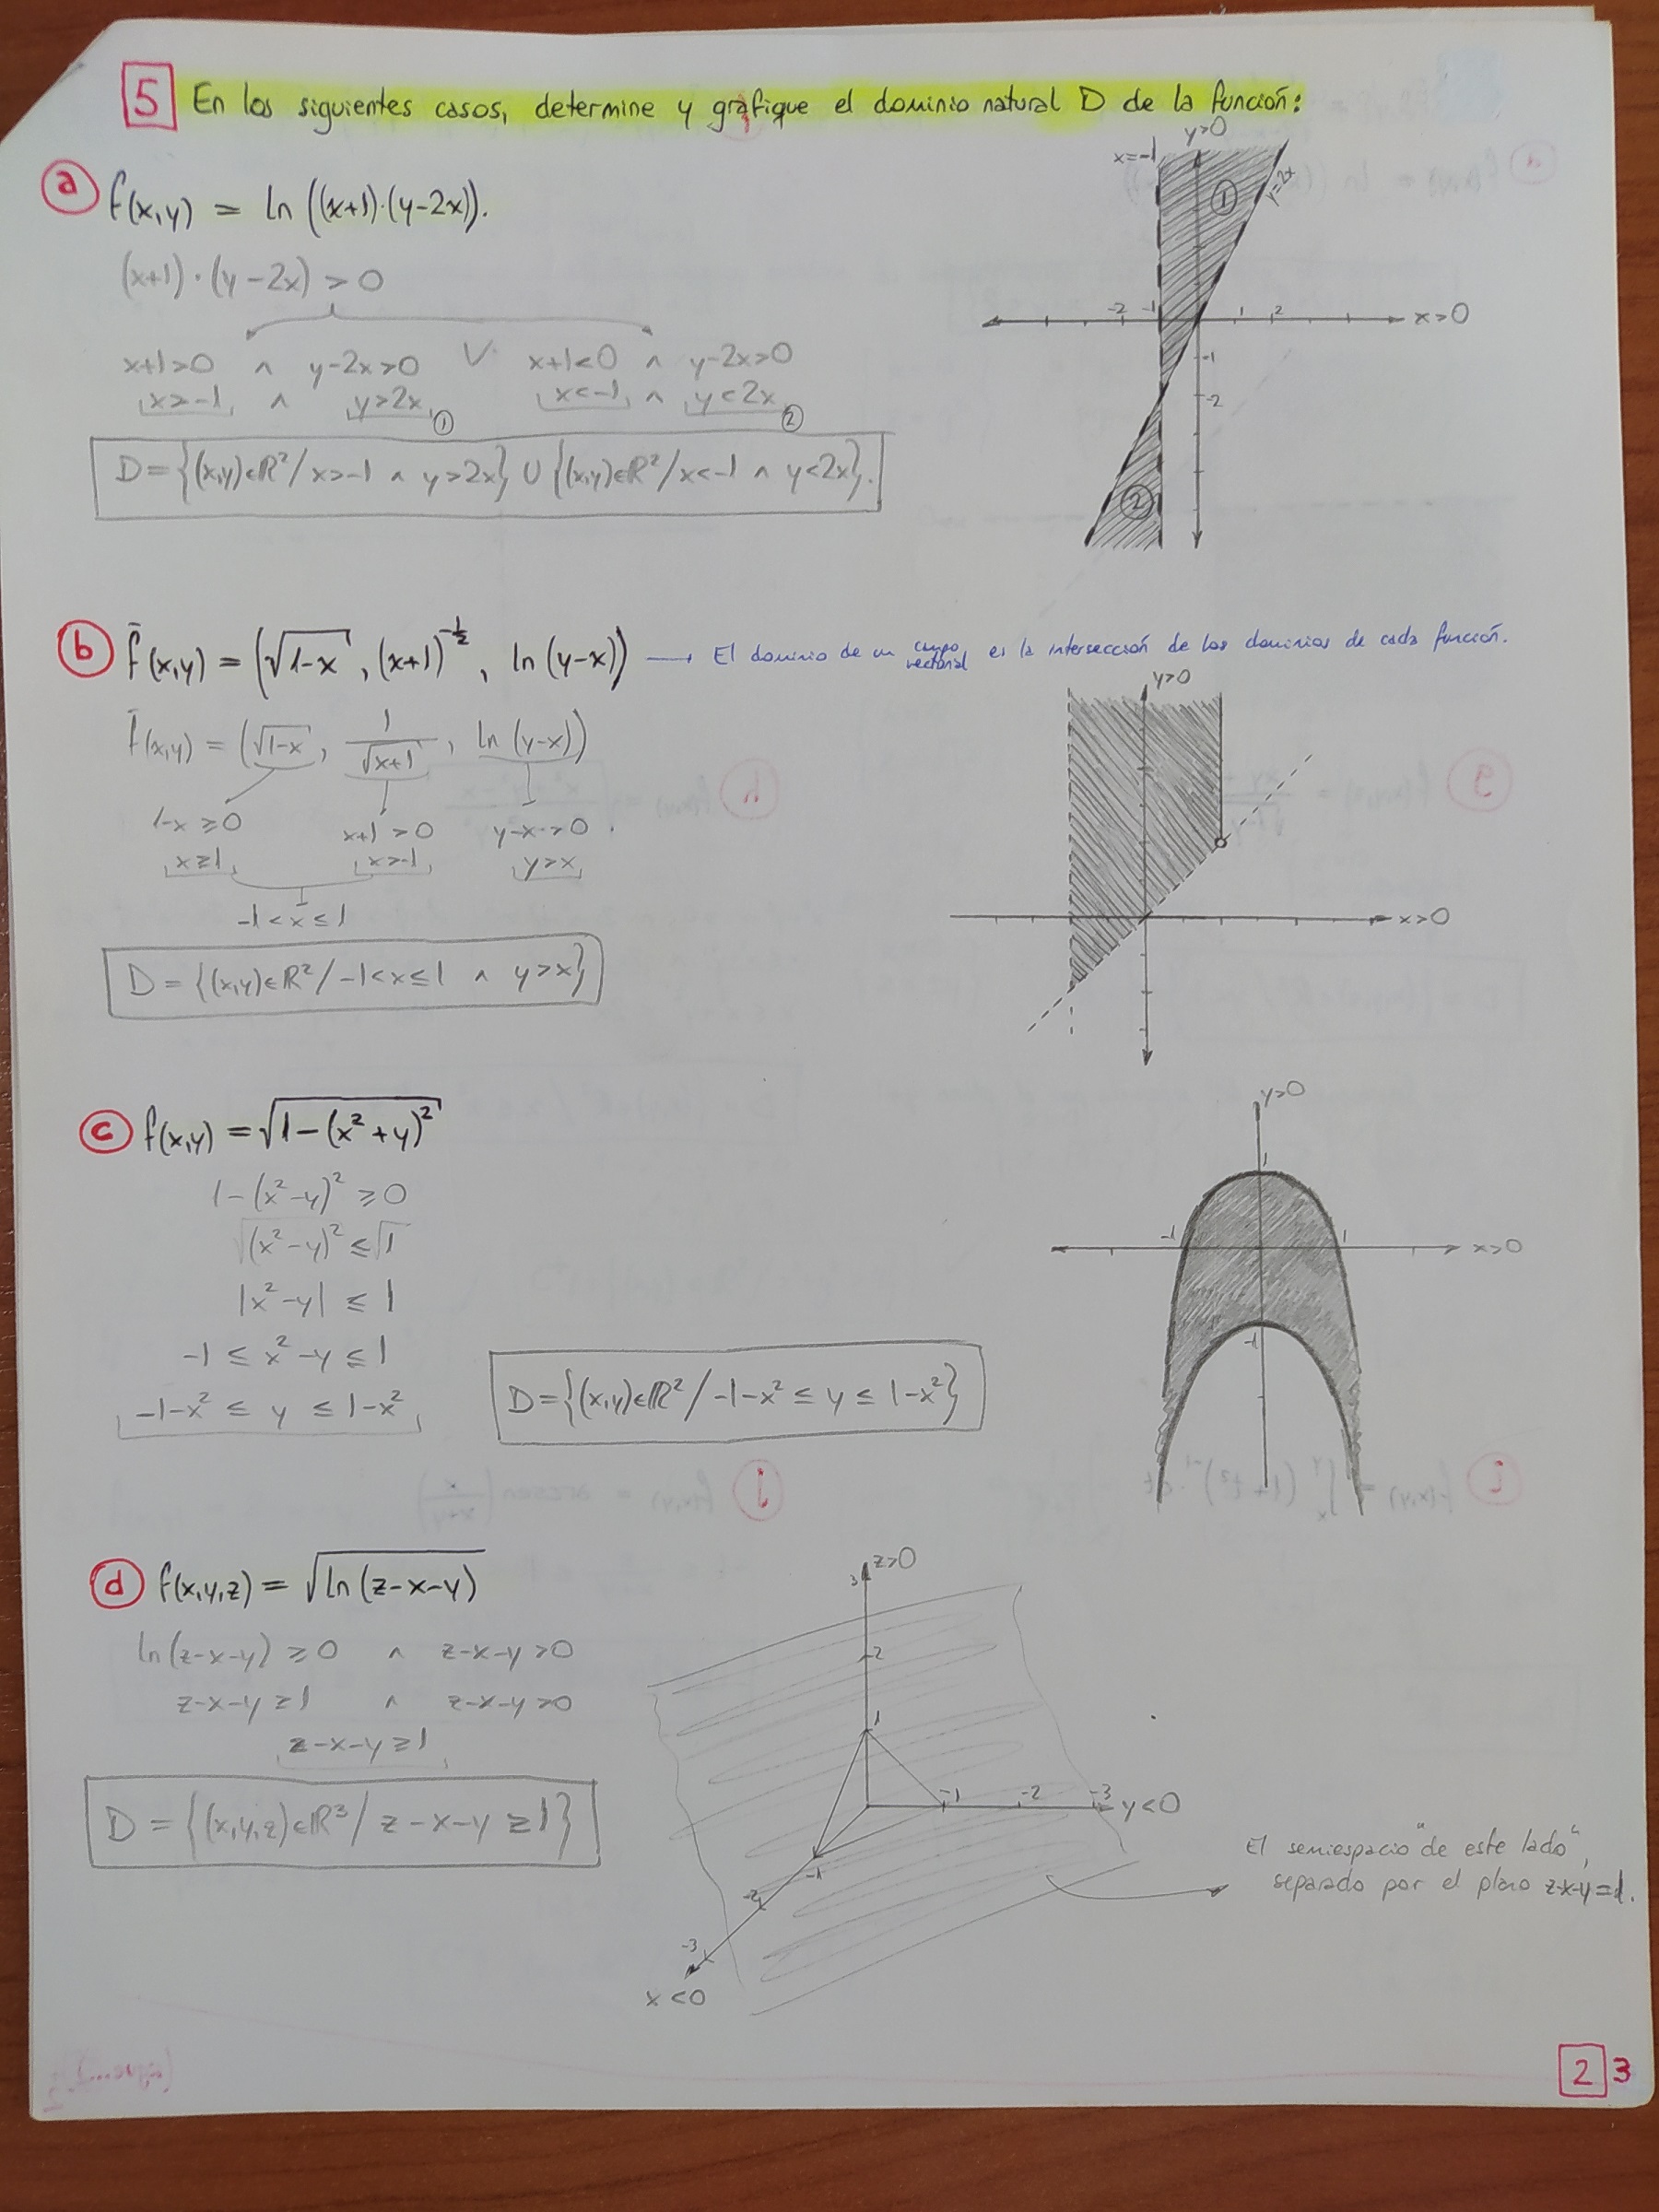 5 En los siguientes casos, determine y grafique el dominio natural D de la función:
a f(x,y) = ln ((x+1)·(y-2x)).
(x+1)·(y-2x) > 0
x+1>0 ∧ y-2x>0 ∨ x+1<0 ∧ y-2x>0
x>-1 ∧ y>2x ① x<-1 ∧ y<2x ②
D = {(x,y)∈ℝ²/x>-1 ∧ y>2x} ∪ {(x,y)∈ℝ²/x<-1 ∧ y<2x}.
y>0
x=-1
y=2x
①
-2 -1 1 2 x>0
-1
-2
②
b f̄(x,y) = (√(1-x), (x+1)^(-1/2), ln(y-x)) → El dominio de un campo vectorial es la intersección de los dominios de cada función.
f̄(x,y) = (√(1-x), 1/√(x+1), ln(y-x))
1-x ≥0 x+1 >0 y-x>0.
x≥1 x>-1 y>x
-1<x≤1
D = {(x,y)∈ℝ²/-1<x≤1 ∧ y>x}
y>0
x>0
c f(x,y) = √(1-(x²+y)²)
1-(x²-y)² ≥0
√(x²-y)² ≤ √1
|x²-y| ≤ 1
-1 ≤ x²-y ≤ 1
-1-x² ≤ y ≤ 1-x²
D={(x,y)∈ℝ²/-1-x² ≤ y ≤ 1-x²}
y>0
1
-1 1 x>0
-1
d f(x,y,z) = √(ln(z-x-y))
ln(z-x-y) ≥0 ∧ z-x-y>0
z-x-y≥1 ∧ z-x-y>0
z-x-y≥1
D = {(x,y,z)∈ℝ³/ z-x-y ≥1}
z>0
3
2
1
-1 -2 -3 y<0
-1
-2
-3
x<0
El semiespacio "de este lado",
separado por el plano z-x-y=1.
2 3